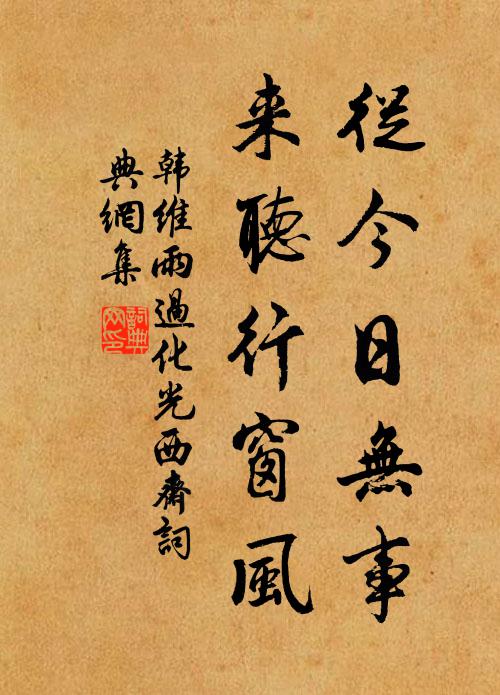 從今日無事
来聽行窗風
韩維雨過化光西齋詞
典網集
詞典
网印